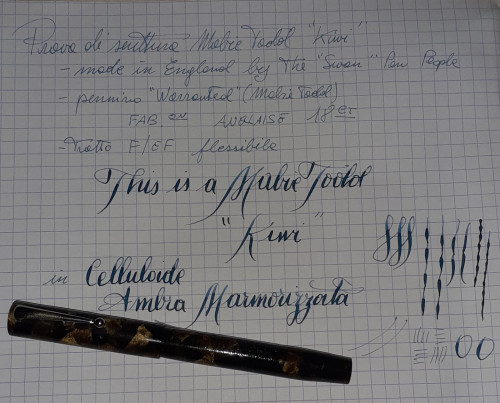 Prova di scrittura Mabie Todd "Kiwi"
- made in England by The "Swan" Pen People
- pennino "Warranted" (Mabie Todd)
FAB ON ANGLAISE 18 CT
- Tratto F/EF flessibile
This is a Mabie Todd
"Kiwi"
in Celluloide
Ambra Marmorizzata